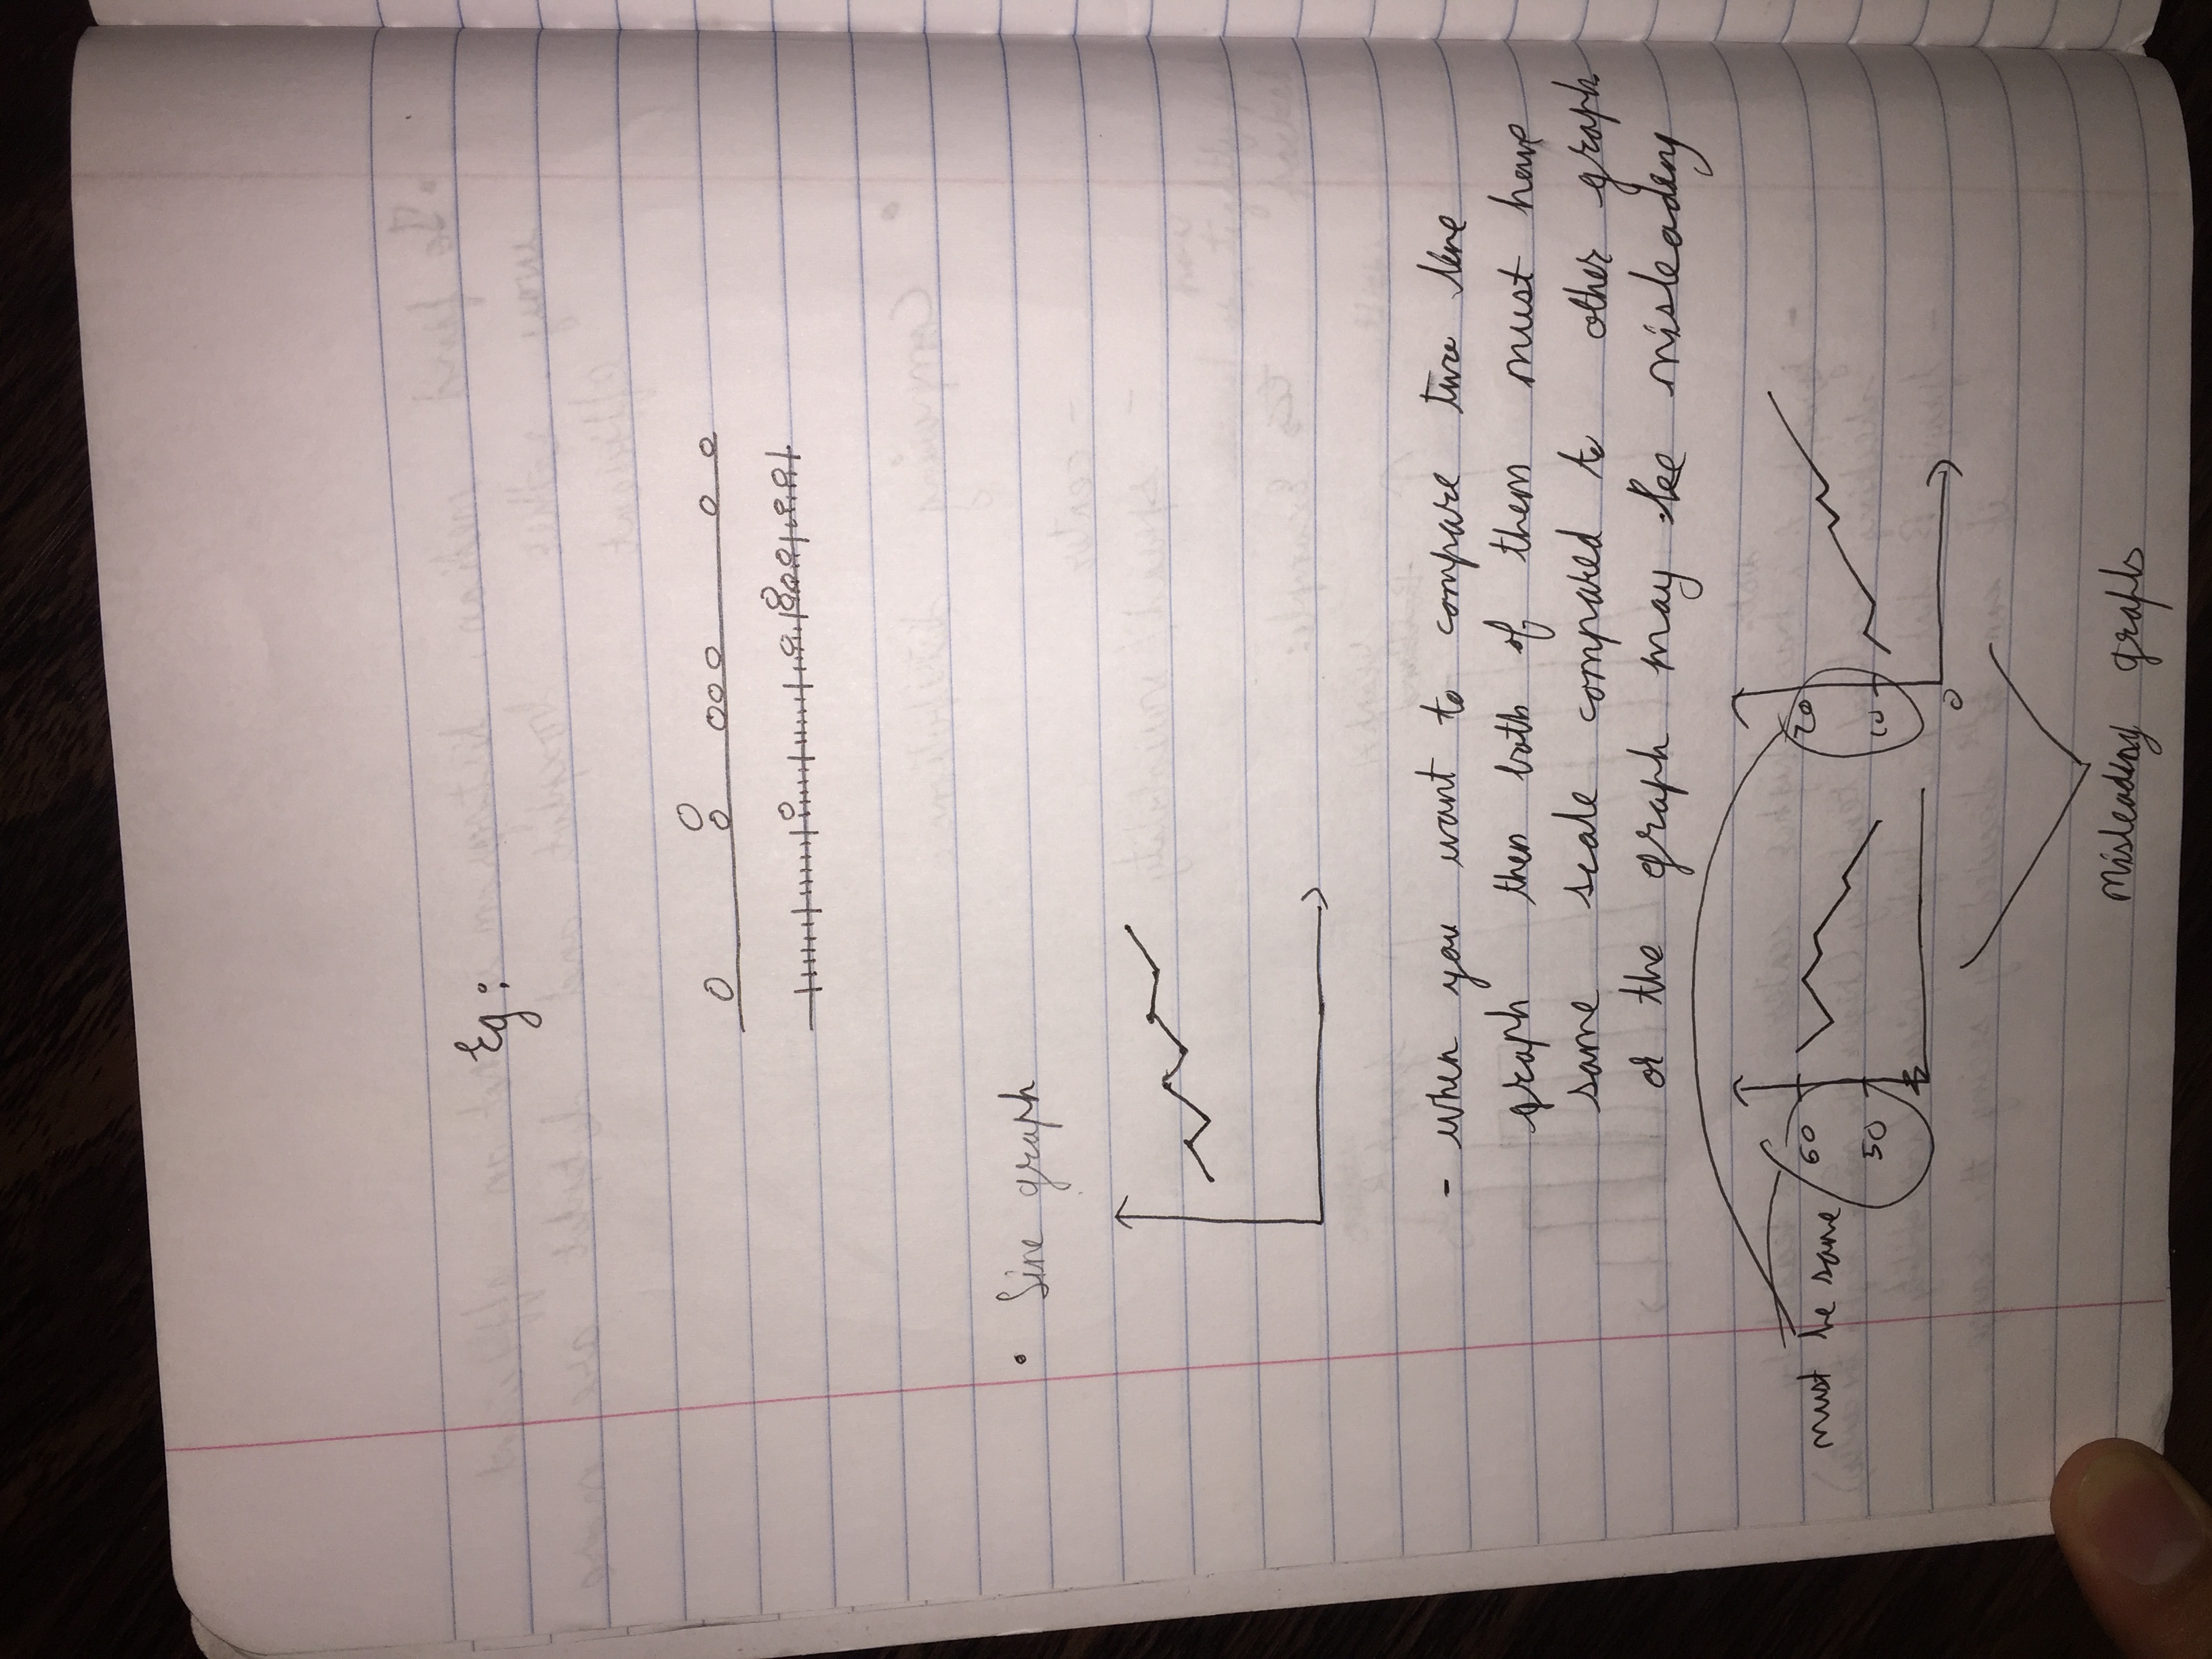 Eg:
• Line graph
- when you want to compare two line
graph then both of them must have
same scale compared to other graph
or the graph may be misleading
must be same
60
50
20
10
0
misleading graphs